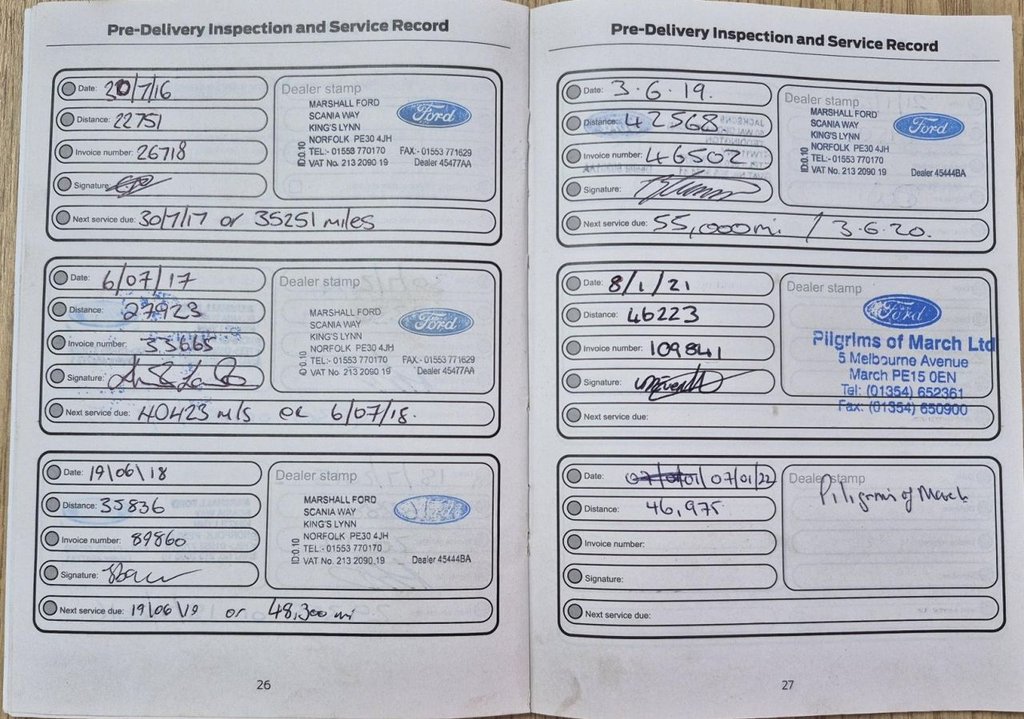 Pre-Delivery Inspection and Service Record
Date: 30/7/16
Distance: 22751
Invoice number: 26718
Signature:
Next service due: 30/7/17 or 35251 miles
Dealer stamp
MARSHALL FORD
SCANIA WAY
KING'S LYNN
NORFOLK PE30 4JH
TEL:- 01553 770170 FAX:- 01553 771629
VAT No. 213 2090 19 Dealer 45477AA
ID:0.10
Ford
Date: 6/07/17
Distance: 27923
Invoice number: 33665
Signature:
Next service due: 40423 mls or 6/07/18.
Dealer stamp
MARSHALL FORD
SCANIA WAY
KING'S LYNN
NORFOLK PE30 4JH
TEL:- 01553 770170 FAX:- 01553 771629
VAT No. 213 2090 19 Dealer 45477AA
ID:0.10
Ford
Date: 19/06/18
Distance: 35836
Invoice number: 89860
Signature:
Next service due: 19/06/19 or 48,300 mi
Dealer stamp
MARSHALL FORD
SCANIA WAY
KING'S LYNN
NORFOLK PE30 4JH
TEL:- 01553 770170
VAT No. 213 2090 19 Dealer 45444BA
ID:0.10
26
Pre-Delivery Inspection and Service Record
Date: 3.6.19.
Distance: 42568
Invoice number: 46502
Signature:
Next service due: 55,000mi / 3.6.20.
Dealer stamp
MARSHALL FORD
SCANIA WAY
KING'S LYNN
NORFOLK PE30 4JH
TEL:- 01553 770170
VAT No. 213 2090 19 Dealer 45444BA
ID:0.10
Ford
Date: 8/1/21
Distance: 46223
Invoice number: 109841
Signature:
Next service due:
Dealer stamp
Ford
Pilgrims of March Ltd
5 Melbourne Avenue
March PE15 0EN
Tel: (01354) 652361
Fax: (01354) 650900
Date: 07/01/22
Distance: 46,975
Invoice number:
Signature:
Next service due:
Dealer stamp
Piligrims of March
27